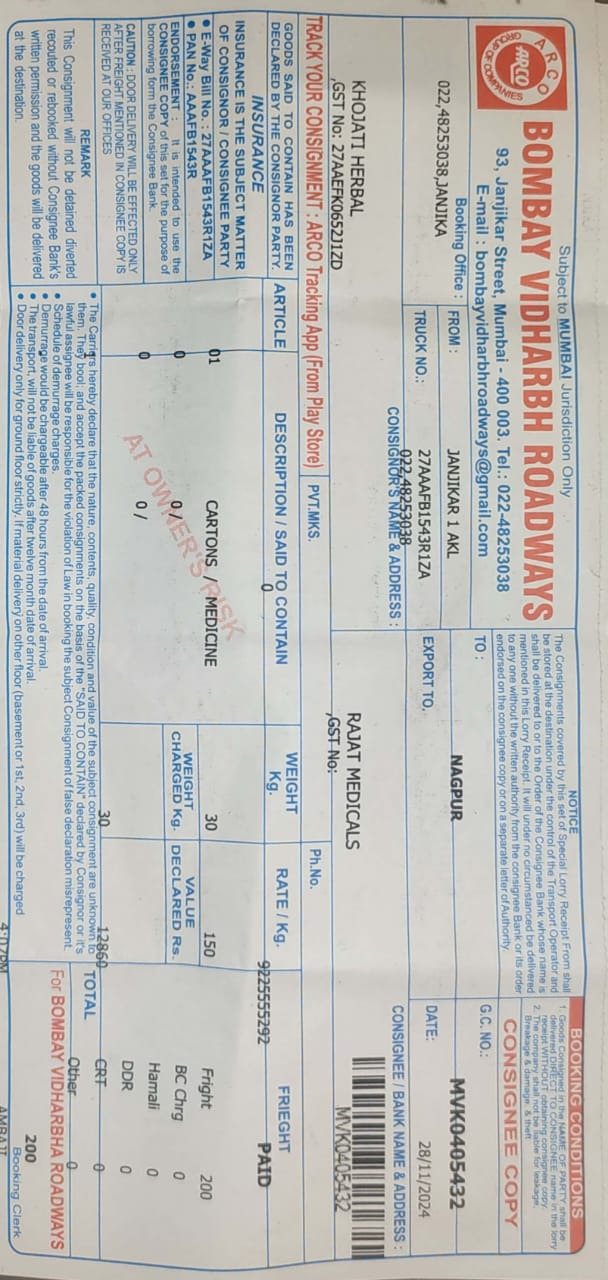 ARCO
ARCO
GROUP OF COMPANIES
Subject to MUMBAI Jurisdiction Only
BOMBAY VIDHARBH ROADWAYS
93, Janjikar Street, Mumbai - 400 003. Tel.: 022-48253038
E-mail : bombayvidharbhroadways@gmail.com
NOTICE
The Consignments covered by this set of Special Lorry Receipt From shall
be stored at the destination under the control of the Transport Operator and
shall be delivered to or to the Order of the Consignee Bank whose name is
mentioned in this Lorry Receipt. It will under no circumstanced be delivered
to any one without the written authority from the consignee Bank or its order
endorsed on the consignee copy or on a separate letter of Authority.
BOOKING CONDITIONS
1. Goods Consigned in the NAME OF PARTY shall be
delivered DIRECT TO CONSIGNEE name in the lorry
receipt WITHOUT obtaining consignee copy.
2. The company shall not be liable for leakage,
Breakage & damage. & theft
CONSIGNEE COPY
Booking Office :
022,48253038,JANJIKA
FROM :
JANJIKAR 1 AKL
TO :
NAGPUR
G.C. NO.:
MVK0405432
TRUCK NO.:
27AAAFB1543R1ZA
EXPORT TO.
DATE:
28/11/2024
022,48253038
CONSIGNOR'S NAME & ADDRESS :
CONSIGNEE / BANK NAME & ADDRESS :
KHOJATI HERBAL
,GST No: 27AAEFK0652J1ZD
RAJAT MEDICALS
,GST No:
MVK0405432
TRACK YOUR CONSIGNMENT : ARCO Tracking App (From Play Store)
PVT.MKS.
Ph.No.
9225555292
GOODS SAID TO CONTAIN HAS BEEN
DECLARED BY THE CONSIGNOR PARTY.
ARTICLE
DESCRIPTION / SAID TO CONTAIN
0
WEIGHT
Kg.
RATE / Kg.
FRIEGHT
PAID
INSURANCE
INSURANCE IS THE SUBJECT MATTER
OF CONSIGNOR / CONSIGNEE PARTY
• E-Way Bill No. : 27AAAFB1543R1ZA
• PAN No.: AAAFB1543R
ENDORSEMENT : It is intended to use the
CONSIGNEE COPY of this set for the purpose of
borrowing form the Consignee Bank.
CAUTION : DOOR DELIVERY WILL BE EFFECTED ONLY
AFTER FREIGHT MENTIONED IN CONSIGNEE COPY IS
RECEIVED AT OUR OFFICES
01
CARTONS / MEDICINE
30
150
Fright 200
0
0 /
BC Chrg 0
0
0 /
Hamali 0
DDR 0
AT OWNER'S RISK
WEIGHT
CHARGED Kg.
VALUE
DECLARED Rs.
30
12860
CRT 0
Other 0
TOTAL
200
REMARK
This Consignment will not be detained diverted
recouled or rebooked without Consignee Bank's
written permission and the goods will be delivered
at the destination.
1
• The Carriers hereby declare that the nature, contents, quality, condition and value of the subject consignment are unknown to
them. They bool; and accept the packed consignments on the basis of the "SAID TO CONTAIN" declared by Consignor or it's
lawful assignee will be responsible for the violation of Law in booking the subject Consignment of false declaration misrepresent.
• Schedule of demurrage charges.
• Demurrage would be chargeable after 48 hours from the date of arrival.
• The transport, will not be liable of goods after twelve month date of arrival.
• Door delivery only for ground floor strictly. If material delivery on other floor (basement or 1st, 2nd, 3rd) will be charged
For BOMBAY VIDHARBHA ROADWAYS
Booking Clerk
4:07PM